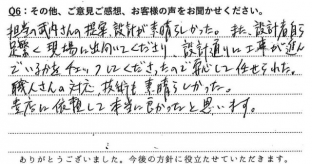 Q6：その他、ご意見ご感想、お客様の声をお聞かせください。
担当の武内さんの提案、設計が素晴らしかった。また、設計者自ら
足繁く現場に出向いてくださり、設計通りに工事が進ん
でいるかをチェックしてくださったので安心して任せられた。
職人さんの対応、技術も素晴らしかった。
貴店に依頼して本当に良かったと思います。
ありがとうございました。今後の方針に役立たせていただきます。